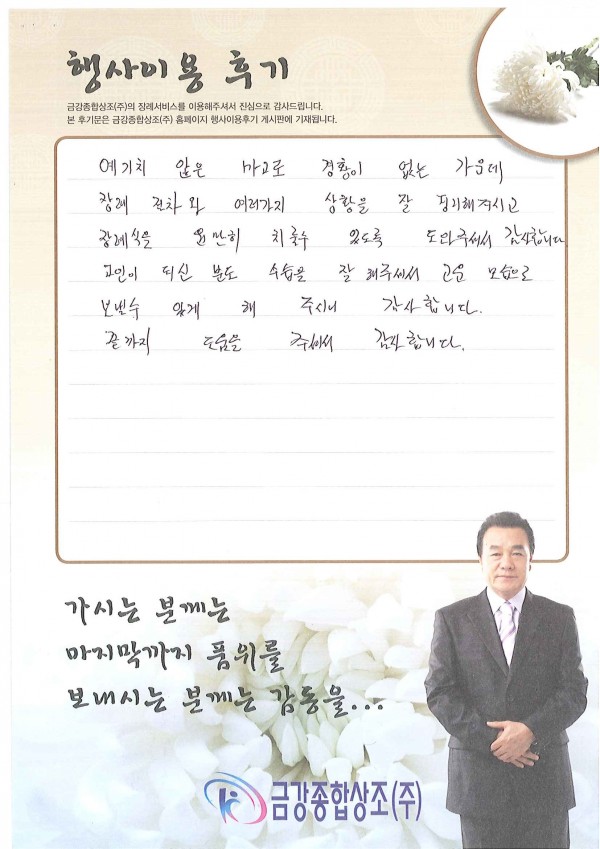 행사이용 후기
금강종합상조(주)의 장례서비스를 이용해주셔서 진심으로 감사드립니다.
본 후기문은 금강종합상조(주) 홈페이지 행사이용후기 게시판에 기재됩니다.
예기치 않은 사고로 경황이 없는 가운데
장례 절차와 여러가지 상황을 잘 해주시고
장례식을 원만히 치룰수 있도록 도와주셔서 감사합니다
고인이 되신 분도 수습을 잘 해주셔서 고운 모습으로
보낼수 있게 해 주시니 감사합니다.
끝까지 도움을 주셔서 감사합니다.
가시는 분께는
마지막까지 품위를
보내시는 분께는 감동을...
금강종합상조(주)